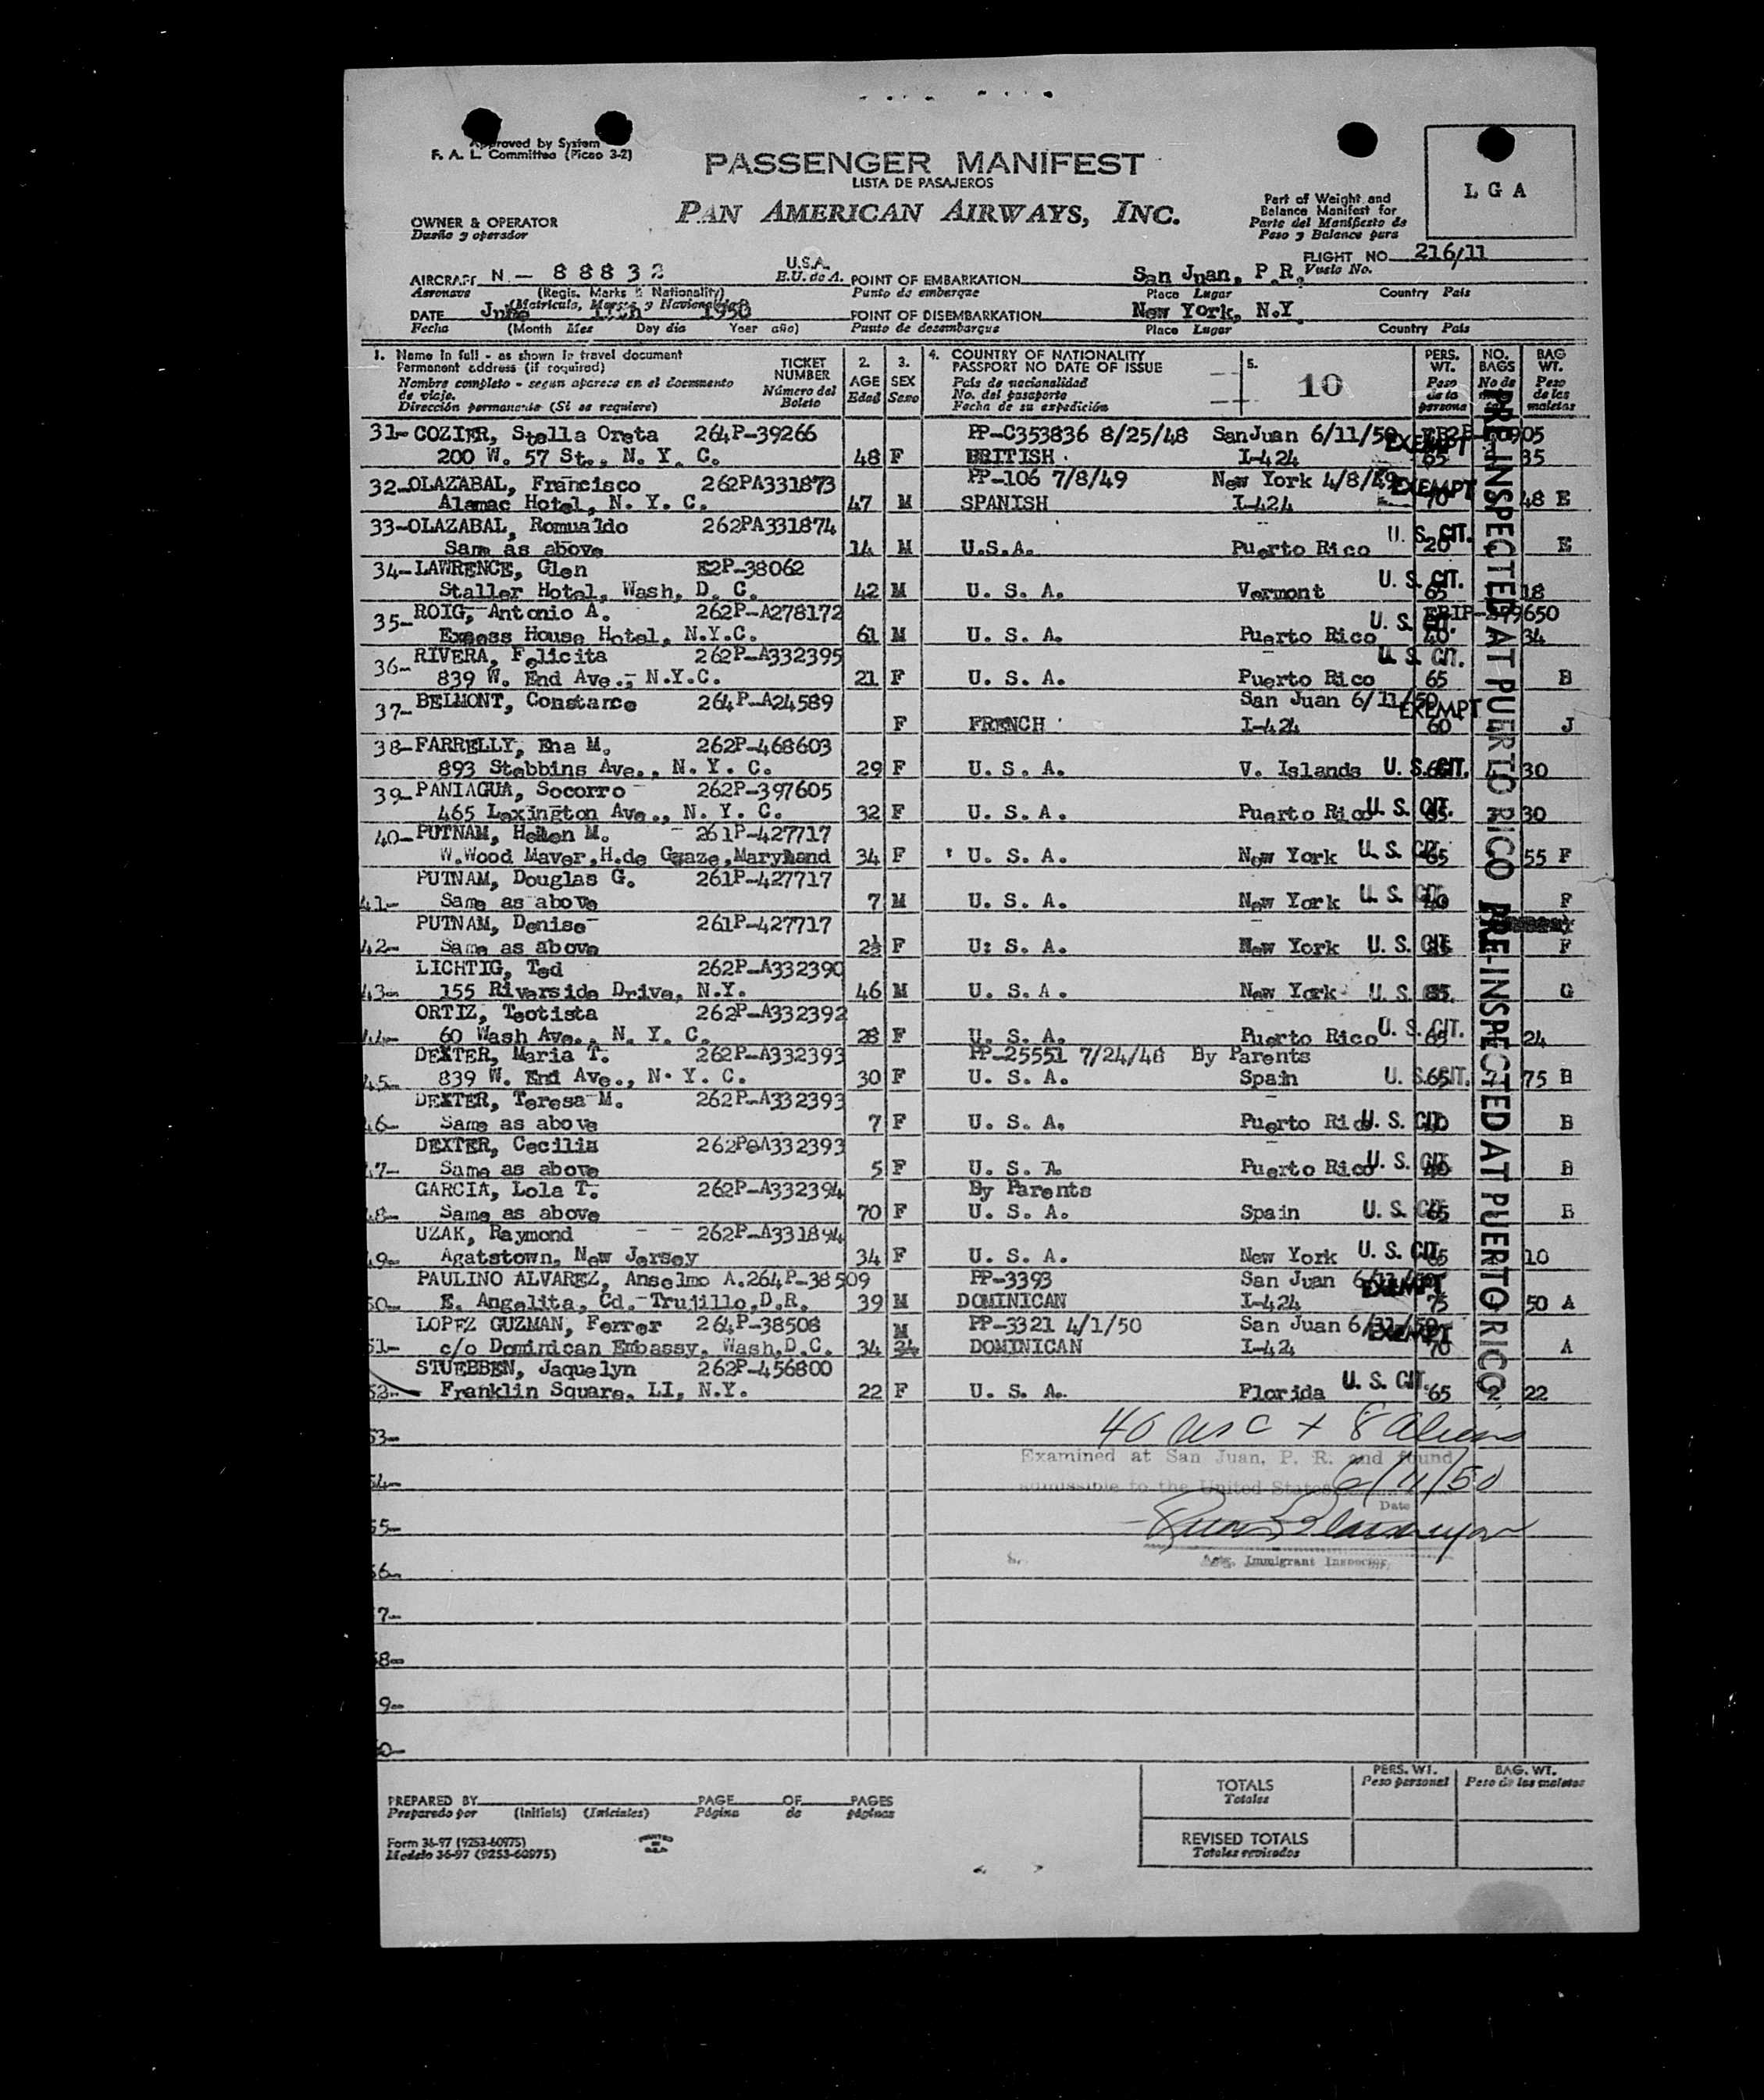 Approved by System
F. A. L. Committee (Picao 3-2)
PASSENGER MANIFEST
LISTA DE PASAJEROS
PAN AMERICAN AIRWAYS, INC.
Part of Weight and
Balance Manifest for
Parte del Manifiesto de
Peso y Balance para
L G A
OWNER & OPERATOR
Dueño y operador
FLIGHT NO. 216/11
Vuelo No.
AIRCRAFT N - 88832 U.S.A. POINT OF EMBARKATION San Juan, P R,
Aeronave (Regis. Marks & Nationality) E.U. de A. Punto de embarque Place Lugar Country Pais
(Matricula, Marcas y Nacionalidad)
DATE June 11th 1950 POINT OF DISEMBARKATION New York, N.Y
Fecha (Month Mes Day dia Year año) Punto de desembarque Place Lugar Country Pais
1. Name in full - as shown in travel document
Permanent address (if required)
Nombre completo - segun aparece en el documento
de viaje.
Dirección permanente (Si se requiere)
TICKET
NUMBER
Número del
Boleto
2.
AGE
Edad
3.
SEX
Sexo
4. COUNTRY OF NATIONALITY
PASSPORT NO DATE OF ISSUE
Pais de nacionalidad
No. del pasaporte
Fecha de su expedición
5.
10
PERS.
WT.
Peso
de la
persona
NO.
BAGS
No de
BAG
WT.
Peso
de las
maletas
31- COZIER, Stella Oreta 264P-39266 PP-C353836 8/25/48 SanJuan 6/11/50 EXEMPT
200 W. 57 St., N. Y. C. 48 F BRITISH. I-424 65 35
32-OLAZABAL, Francisco 262PA331873 PP-106 7/8/49 New York 4/8/49 EXEMPT
Alamac Hotel, N. Y. C. 47 M SPANISH I-424 70 48 E
33-OLAZABAL, Romualdo 262PA331874 U. S. CIT.
Same as above 14 M U.S.A. Puerto Rico 20 E
34-LAWRENCE, Glen E2P-38062 U. S. CIT.
Staller Hotel, Wash, D. C. 42 M U. S. A. Vermont 65 18
35- ROIG, Antonio A. 262P-A278172 U. S. CIT.
Exgess House Hotel, N.Y.C. 61 M U. S. A. Puerto Rico 34
36- RIVERA, Felicita 262P-A332395 U. S. CIT.
839 W. End Ave., N.Y.C. 21 F U. S. A. Puerto Rico 65 B
37- BELMONT, Constance 264P-A24589 San Juan 6/11/50 EXEMPT
F FRENCH I-424 60 J
38-FARRELLY, Ena M. 262P-468603
893 Stebbins Ave., N. Y. C. 29 F U. S. A. V. Islands U. S. CIT. 30
39- PANIAGUA, Socorro 262P-397605
465 Lexington Ave., N. Y. C. 32 F U. S. A. Puerto Rico U. S. CIT. 30
40- PUTNAM, Hellen M. 261P-427717
W.Wood Maver,H.de Graze,Maryland 34 F U. S. A. New York U. S. CIT. 65 55 F
PUTNAM, Douglas G. 261P-427717
41- Same as above 7 M U. S. A. New York U. S. CIT. F
PUTNAM, Denise 261P-427717
42- Same as above 2½ F U: S. A. New York U. S. CIT. F
LICHTIG, Ted 262P-A332390
43- 155 Riverside Drive, N.Y. 46 M U. S.A. New York U. S. CIT. G
ORTIZ, Teotista 262P-A332392
44- 60 Wash Ave., N. Y. C. 28 F U. S. A. Puerto Rico U. S. CIT. 24
DEXTER, Maria T. 262P-A332393 PP-25551 7/24/48 By Parents
45- 839 W. End Ave., N. Y. C. 30 F U. S. A. Spain U. S. CIT. 65 75 B
DEXTER, Teresa M. 262P-A332393
46- Same as above 7 F U. S. A. Puerto Rico U. S. CIT. B
DEXTER, Cecilia 262P@A332393
47- Same as above 5 F U. S. A Puerto Rico U. S. CIT. B
GARCIA, Lola T. 262P-A332394 By Parents
48- Same as above 70 F U. S. A. Spain U. S. CIT. 65 B
UZAK, Raymond 262P-A331894
49- Agatstown, New Jersey 34 F U. S. A. New York U. S. CIT. 65 10
PAULINO ALVAREZ, Anselmo A. 264P-38509 PP-3393 San Juan 6/11/50 EXEMPT
50- E. Angelita, Cd. Trujillo,D.R. 39 M DOMINICAN I-424 75 50 A
LOPEZ GUZMAN, Ferrer 264P-38508 M PP-3321 4/1/50 San Juan EXEMPT
51- c/o Dominican Embassy, Wash,D.C. 34 DOMINICAN I-424 70 A
STUEBBEN, Jaquelyn 262P-456800
52- Franklin Square, LI, N.Y. 22 F U. S. A. Florida U. S. CIT. 65 2 22
PRE-INSPECTED AT PUERTO RICO
PRE-INSPECTED AT PUERTO RICO
53- 40 USC + 8 Aliens
Examined at San Juan, P. R. and found
54- admissible to the United States 6/11/50
Date
55-
Actg. Immigrant Inspector
56-
57-
58-
59-
60-
PREPARED BY PAGE OF PAGES
Preparado por (Initials) (Iniciales) Página de páginas
TOTALS
Totales
PERS. WT.
Peso personal
BAG. WT.
Peso de las maletas
REVISED TOTALS
Totales revisados
Form 36-97 (9253-60975)
Modelo 36-97 (9253-60975)
PRINTED
IN
U.S.A.